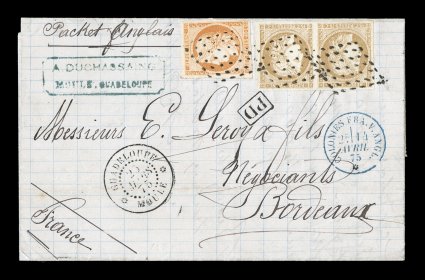 Packet Anglais
A DUCHASSAING
MOULE, GUADELOUPE
PD
Messieurs E. Leroy & fils
Négociants
Bordeaux
France
GUADELOUPE
MOULE
COLONIES FRA. V. ANGL.
14
AVRIL
75